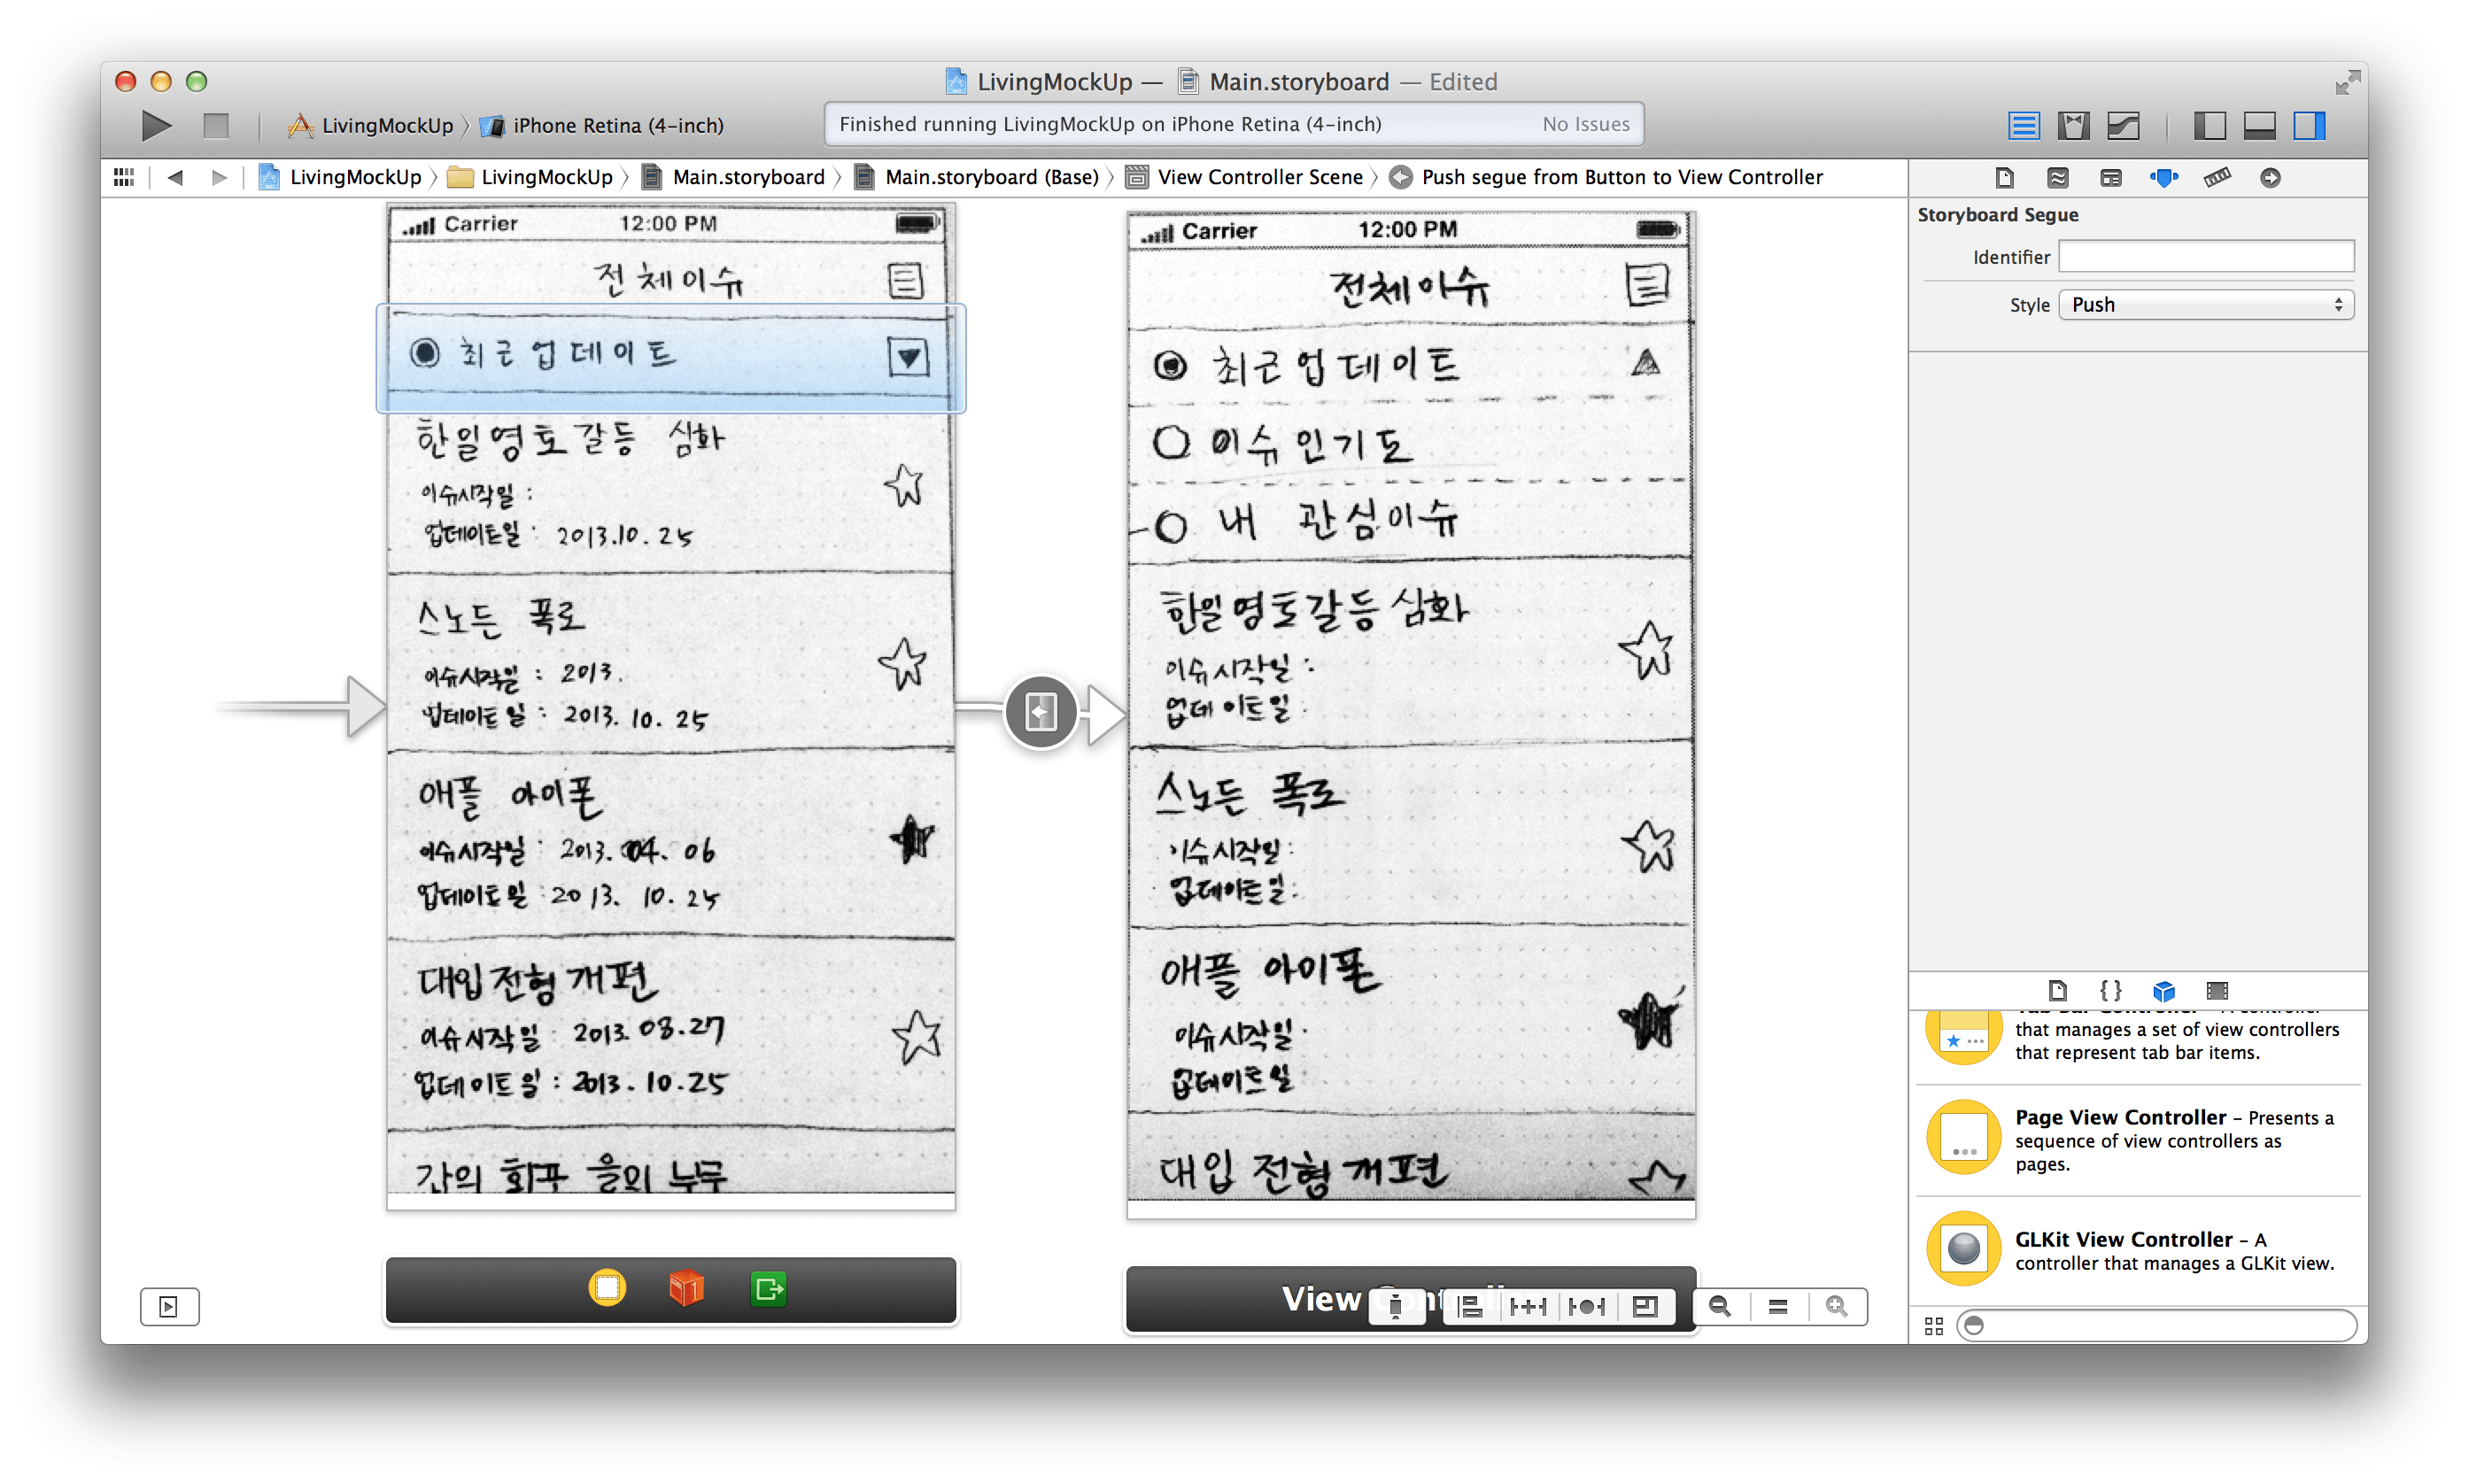 LivingMockUp — Main.storyboard — Edited
LivingMockUp iPhone Retina (4-inch)
Finished running LivingMockUp on iPhone Retina (4-inch) No Issues
LivingMockUp LivingMockUp Main.storyboard Main.storyboard (Base) View Controller Scene Push segue from Button to View Controller
Carrier 12:00 PM
전체이슈
최근업데이트
한일영토갈등 심화
이슈시작일 :
업데이트일 : 2013.10.25
스노든 폭로
이슈시작일 : 2013.
업데이트일 : 2013.10.25
애플 아이폰
이슈시작일 : 2013.04.06
업데이트일 : 2013.10.25
대입전형개편
이슈시작일 : 2013.08.27
업데이트일 : 2013.10.25
Carrier 12:00 PM
전체이슈
최근업데이트
이슈인기도
내 관심이슈
한일영토갈등심화
이슈시작일 :
업데이트일 :
스노든 폭로
이슈시작일 :
업데이트일 :
애플 아이폰
이슈시작일 :
업데이트일 :
대입전형개편
View Controller
Storyboard Segue
Identifier
Style Push
Tab Bar Controller – A controller
that manages a set of view controllers
that represent tab bar items.
Page View Controller – Presents a
sequence of view controllers as
pages.
GLKit View Controller – A
controller that manages a GLKit view.